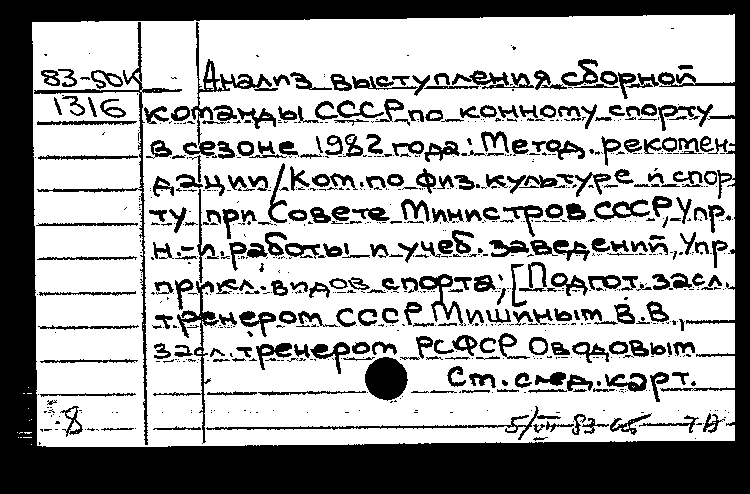 83-50К Анализ выступления сборной
1316 команды СССР по конному спорту
в сезоне 1982 года: Метод. рекомен-
дации / Ком. по физ. культуре и спор-
ту при Совете Министров СССР, Упр.
н.-и. работы и учеб. заведений, Упр.
прикл. видов спорта; [Подгот. засл.
тренером СССР Мишиным В.В.,
засл. тренером РСФСР Оводовым
См. след. карт.
8
5/VII 83